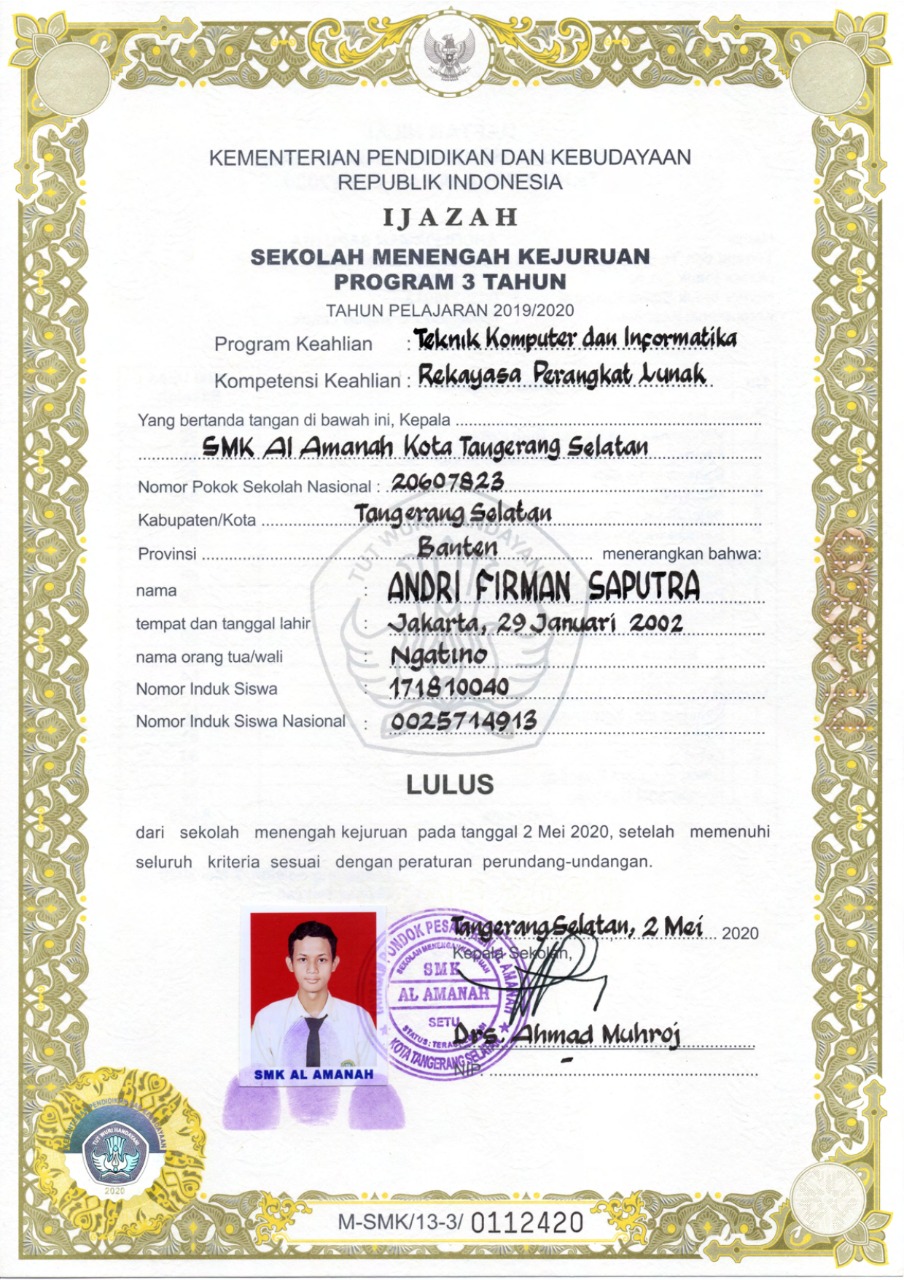 KEMENTERIAN PENDIDIKAN DAN KEBUDAYAAN
REPUBLIK INDONESIA
IJAZAH
SEKOLAH MENENGAH KEJURUAN
PROGRAM 3 TAHUN
TAHUN PELAJARAN 2019/2020
Program Keahlian : Teknik Komputer dan Informatika
Kompetensi Keahlian : Rekayasa Perangkat Lunak
Yang bertanda tangan di bawah ini, Kepala
SMK Al Amanah Kota Tangerang Selatan
Nomor Pokok Sekolah Nasional : 20607823
Kabupaten/Kota Tangerang Selatan
Provinsi Banten menerangkan bahwa:
nama : ANDRI FIRMAN SAPUTRA
tempat dan tanggal lahir : Jakarta, 29 Januari 2002
nama orang tua/wali : Ngatino
Nomor Induk Siswa : 171810040
Nomor Induk Siswa Nasional : 0025714913
TUT WURI HANDAYANI
LULUS
dari sekolah menengah kejuruan pada tanggal 2 Mei 2020, setelah memenuhi
seluruh kriteria sesuai dengan peraturan perundang-undangan.
Tangerang Selatan, 2 Mei 2020
Kepala Sekolah,
SMK
AL AMANAH
SETU
KOTA TANGERANG SELATAN
Drs. Ahmad Muhroj
NIP. -
SMK AL AMANAH
TUT WURI HANDAYANI
2020
M-SMK/13-3/ 0112420